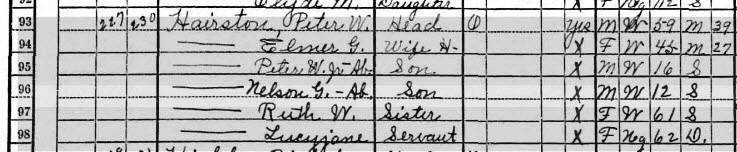 Clyde M. Daughter X F Neg 12 S
93 227 230 Hairston, Peter W. Head O yes M W 59 M 39
94 —— Elmer G. Wife H- X F W 45 M 27
95 —— Peter W. Jr-Ab- Son X M W 16 S
96 —— Nelson G.-Ab. Son X M W 12 S
97 —— Ruth W. Sister X F W 61 S
98 —— Lucyjane Servant X F Neg 62 D.